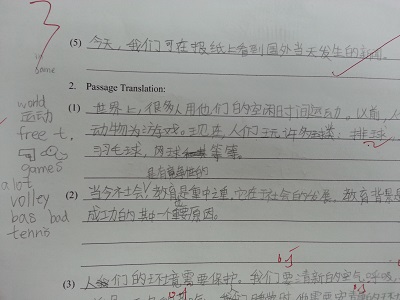 3
(5) 今天，我们可在报纸上看到国外当天发生的新闻
in
same
2. Passage Translation:
world
(1) 世界上，很多人用他们的空闲时间运动。以前，人
运动
动物为游戏。现在，人们玩许多 排球
free t.
羽毛球，网球 等等。
games
a lot
volley
(2) 当今社会，教育是重中之重，它在社会的发展，教育背景是
bas bad
成功的其中一个重要原因。
tennis
(3) 人们的环境需要保护。我们要清新的空气，呼吸